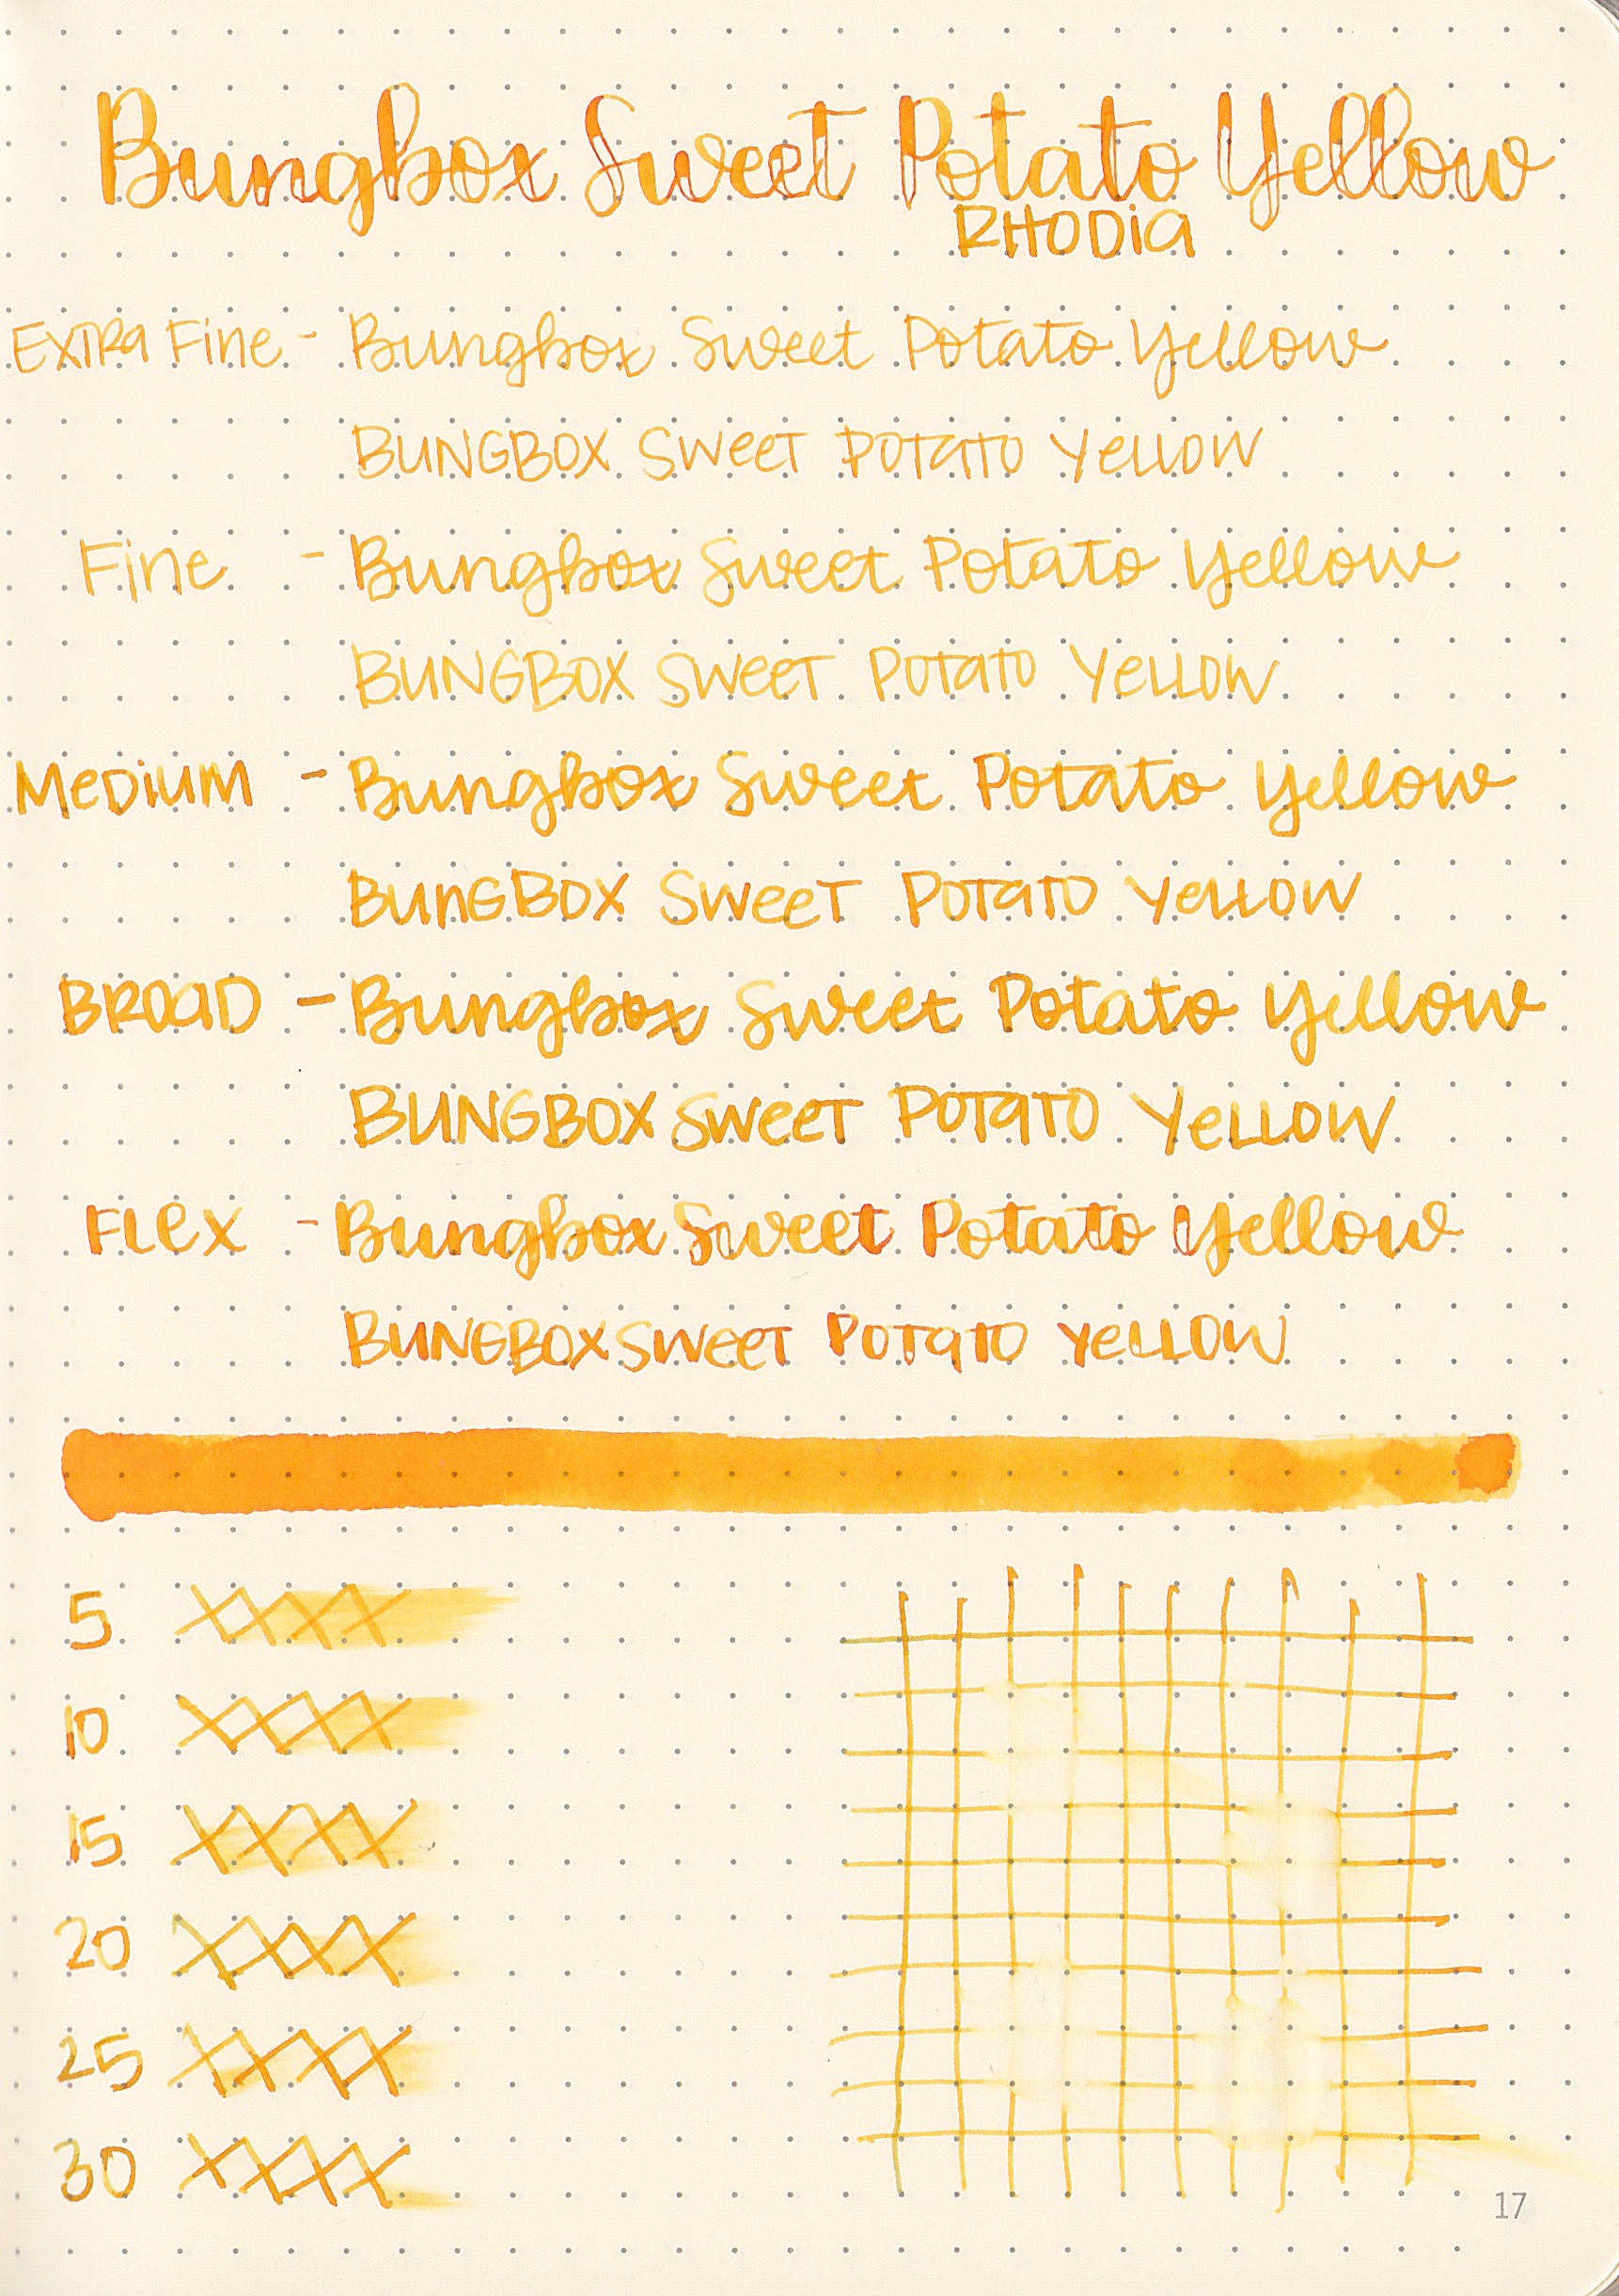 Bungbox Sweet Potato Yellow
RHODia
Extra Fine - Bungbox Sweet Potato Yellow
BUNGBOX SWeeT POTaTO YeLLOW
Fine - Bungbox Sweet Potato Yellow
BUNGBOX SWeeT POTaTO YeLLOW
MeDiUM - Bungbox Sweet Potato Yellow
BUnGBOX SWeeT POTaTO YeLLOW
BROaD - Bungbox Sweet Potato Yellow
BUNGBOX SWeeT POTaTO YeLLOW
FLeX - Bungbox Sweet Potato Yellow
BUNGBOX SWeeT POTaTO YeLLOW
5
10
15
20
25
30
17